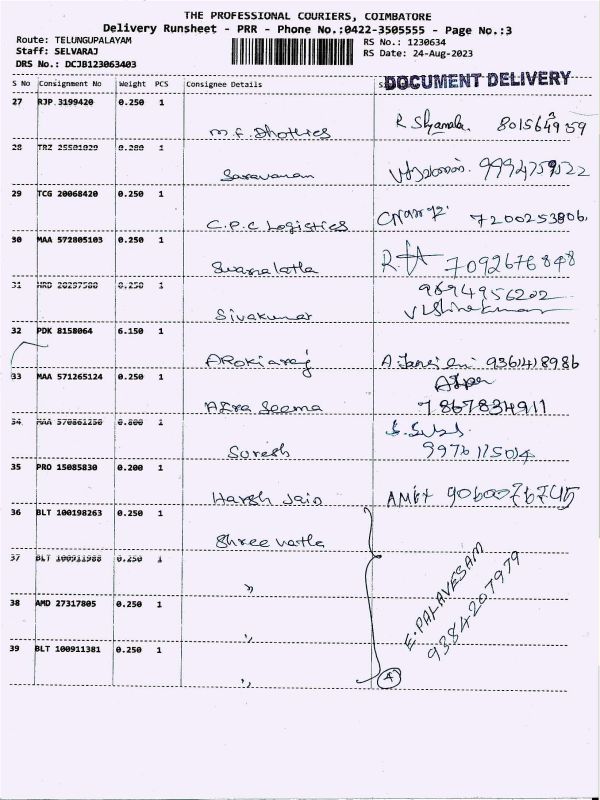 THE PROFESSIONAL COURIERS, COIMBATORE
Delivery Runsheet - PRR - Phone No.:0422-3505555 - Page No.:3
Route: TELUNGUPALAYAM
Staff: SELVARAJ
DRS No.: DCJB123063403
RS No.: 1230634
RS Date: 24-Aug-2023
DOCUMENT DELIVERY
S No Consignment No Weight PCS Consignee Details
27 RJP 3199420 0.250 1
M.F. Dhothies R Shyamala 8015649959
28 TRZ 0.200 1
Saravanan
29 TCG 20068420 0.250 1
C.P.C Logistics 7200253806
30 MAA 572805103 0.250 1
Swarnalatha 7092676848
31 0.250 1
9694956202
Sivakumar
32 PDK 8158064 6.150 1
AROKIARAJ 9361418986
33 MAA 571265124 0.250 1
Seema 7867834911
34 MAA 570861250 0.800 1
Suresh 9976115014
35 PRO 15085830 0.200 1
Harsh Jain
36 BLT 100198263 0.250 1
Shree vatla
37 BLT 100911988 0.250 1
"
38 AMD 27317805 0.250 1
"
39 BLT 100911381 0.250 1
"
E. PALAVESAM
9384207979
4